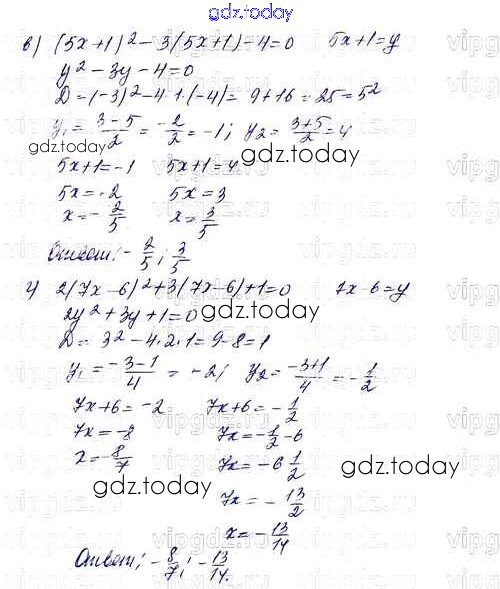 gdz.today
в) (5x+1)² - 3(5x+1) - 4 = 0    5x+1=y
y² - 3y - 4 = 0
D = (-3)² - 4·1·(-4) = 9+16 = 25 = 5²
y₁ = (3-5)/2 = -2/2 = -1; y₂ = (3+5)/2 = 4
gdz.today
gdz.today
5x+1 = -1    5x+1 = 4
5x = -2    5x = 3
x = -2/5    x = 3/5
Ответ: -2/5; 3/5
г) 2(7x-6)² + 3(7x-6) + 1 = 0    7x-6=y
2y² + 3y + 1 = 0
gdz.today
D = 3² - 4·2·1 = 9-8 = 1
y₁ = (-3-1)/4 = -2; y₂ = (-3+1)/4 = -1/2
7x+6 = -2    7x+6 = -1/2
7x = -8    7x = -1/2 - 6
x = -8/7    7x = -6 1/2
gdz.today
gdz.today
7x = -13/2
x = -13/14
Ответ: -8/7; -13/14.